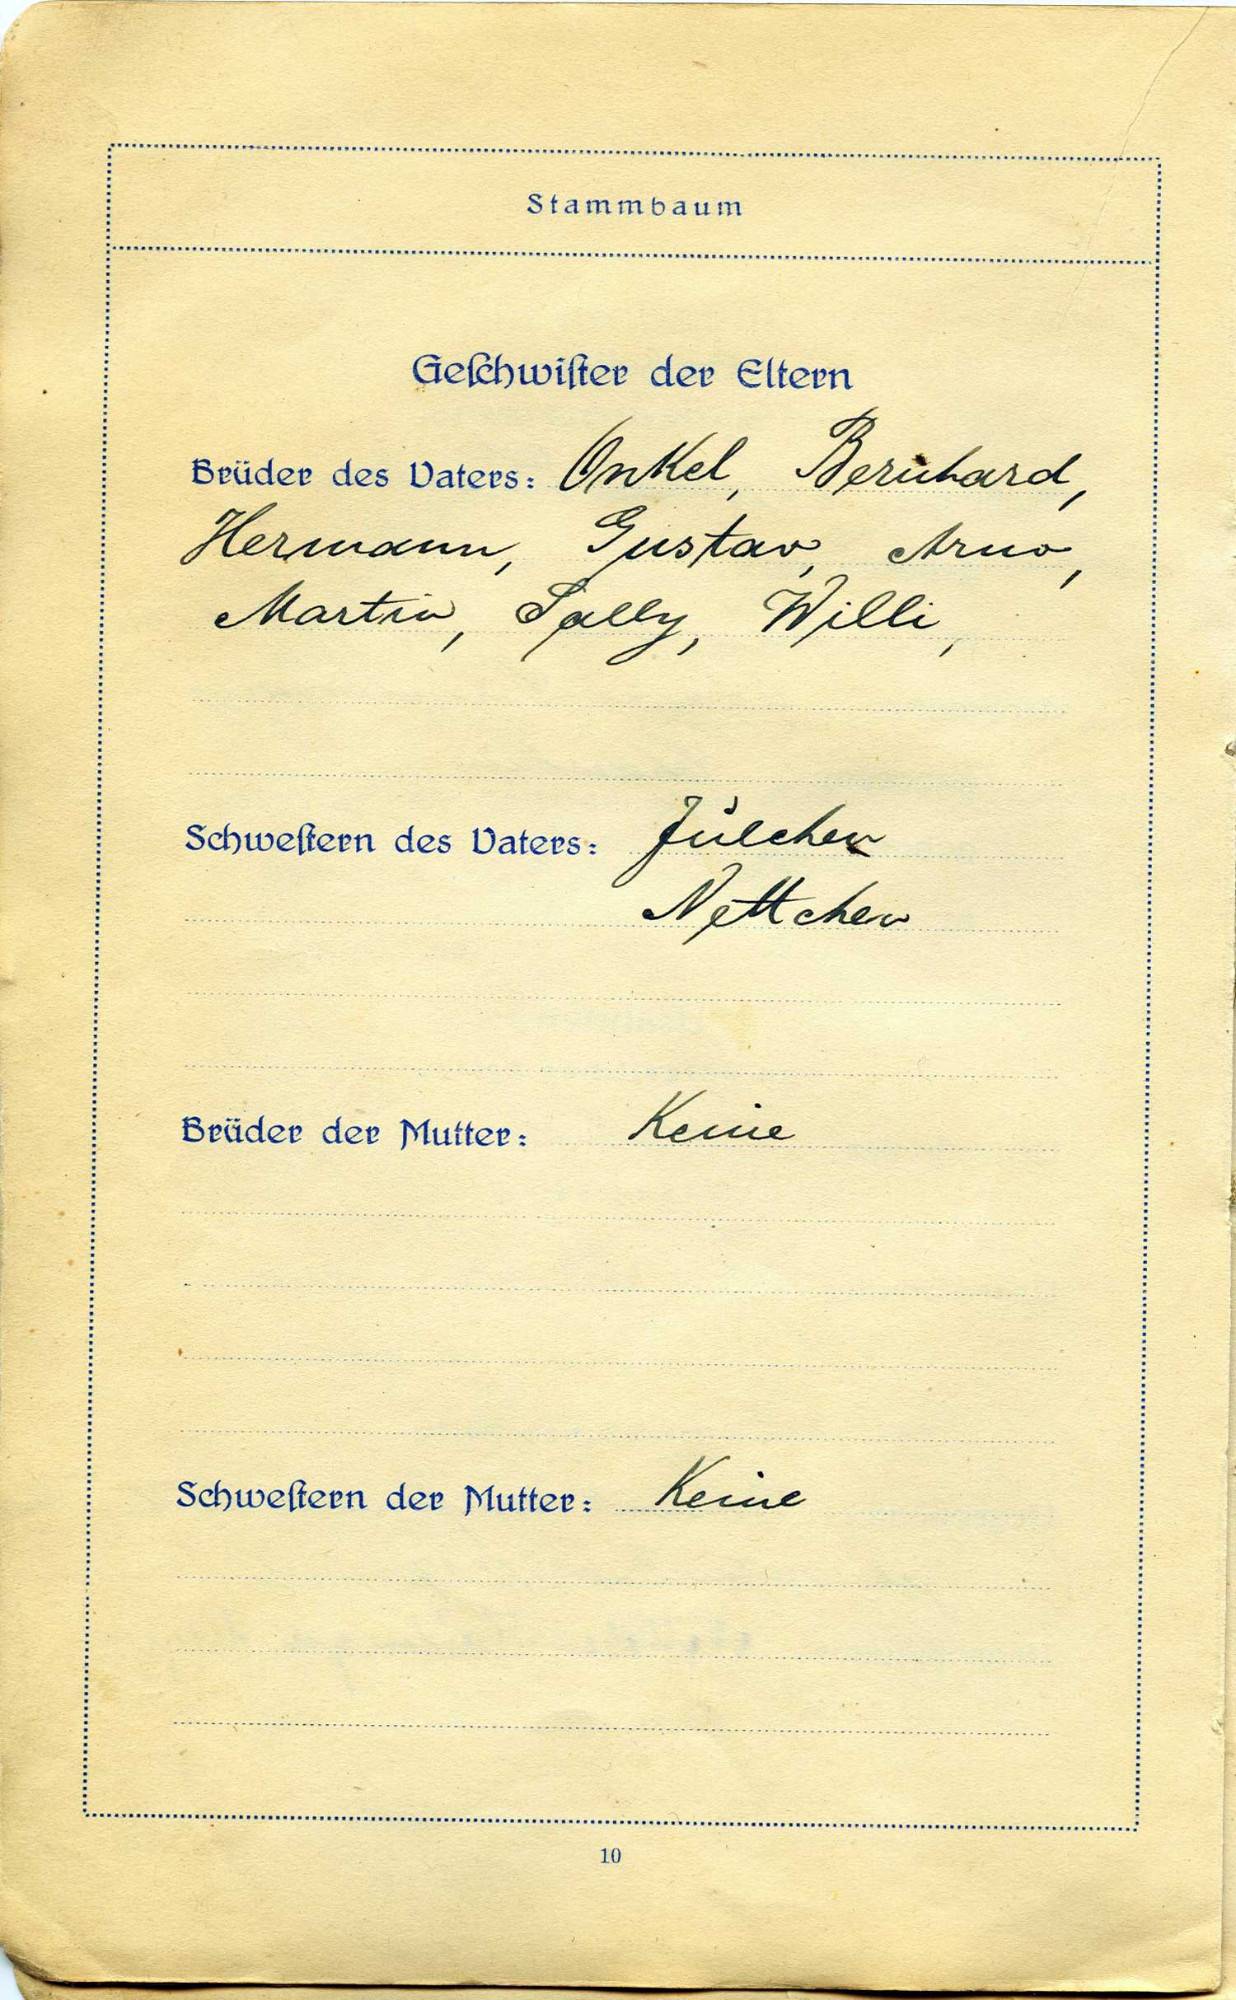 Stammbaum
Geschwister der Eltern
Brüder des Vaters: Onkel, Bernhard,
Hermann, Gustav, Arno,
Martin, Sally, Willi,
Schwestern des Vaters: Julchen
Nettchen
Brüder der Mutter: Keine
Schwestern der Mutter: Keine
10